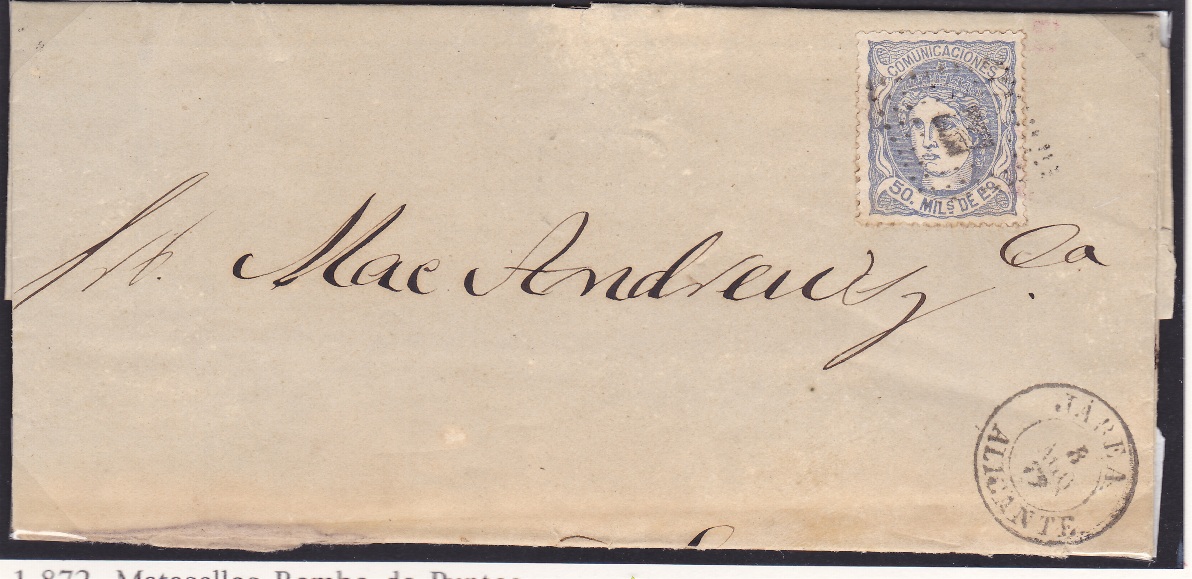 COMUNICACIONES
50. MILS DE EO.
Mac Andrews y Co.
JABEA
ALICANTE
1 872. Matasellos Rombo de Puntos